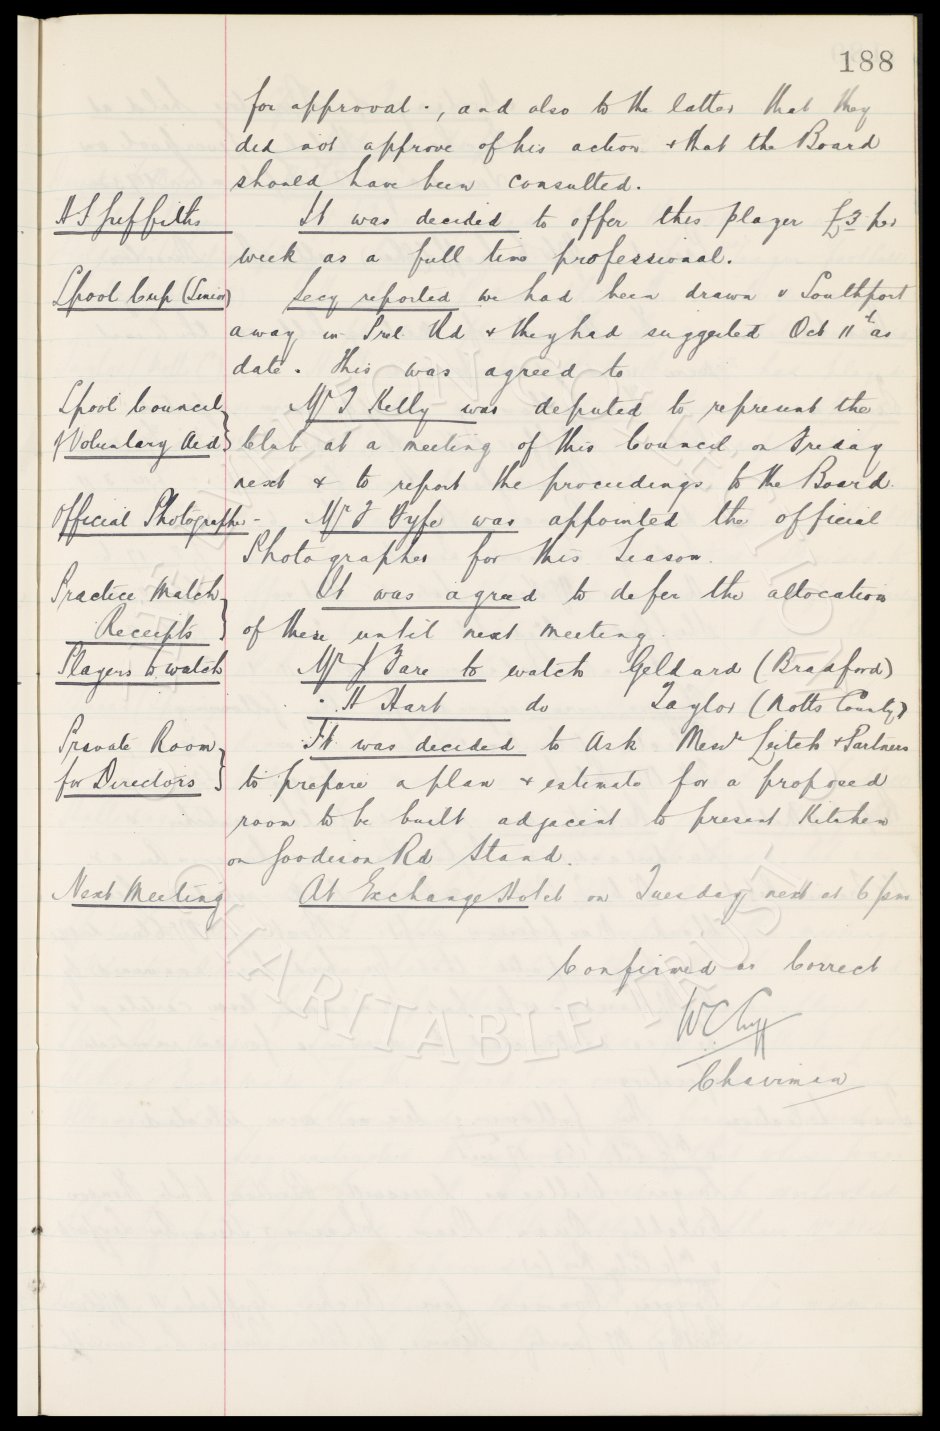 188
for approval., and also to the latter that they
did not approve of his action & that the Board
should have been consulted.
H S Griffiths It was decided to offer this player £3 per
week as a full time professional.
Lpool Cup (Senior) Secy reported we had been drawn v Southport
away in Prel Rd & they had suggested Oct 11th as
date. This was agreed to
Lpool Council Mr T Kelly was deputed to represent the
of Voluntary Aid Club at a meeting of this Council on Friday
next & to report the proceedings to the Board.
Official Photographer - Mr J Fyfe was appointed the official
Photographer for this Season.
Practice Match It was agreed to defer the allocation
Receipts of these until next meeting.
Players to watch Mr J Fare to watch Geldard (Bradford)
" H Hart do Taylor (Notts County)
Private Room It was decided to ask Messrs Leitch & Partners
for Directors to prepare a plan & estimate for a proposed
room to be built adjacent to present Kitchen
on Goodison Rd Stand.
Next Meeting At Exchange Hotel on Tuesday next at 6 pm
Confirmed as Correct
W C Cuff
Chairman
EVERTON COLLECTION
CHARITABLE TRUST